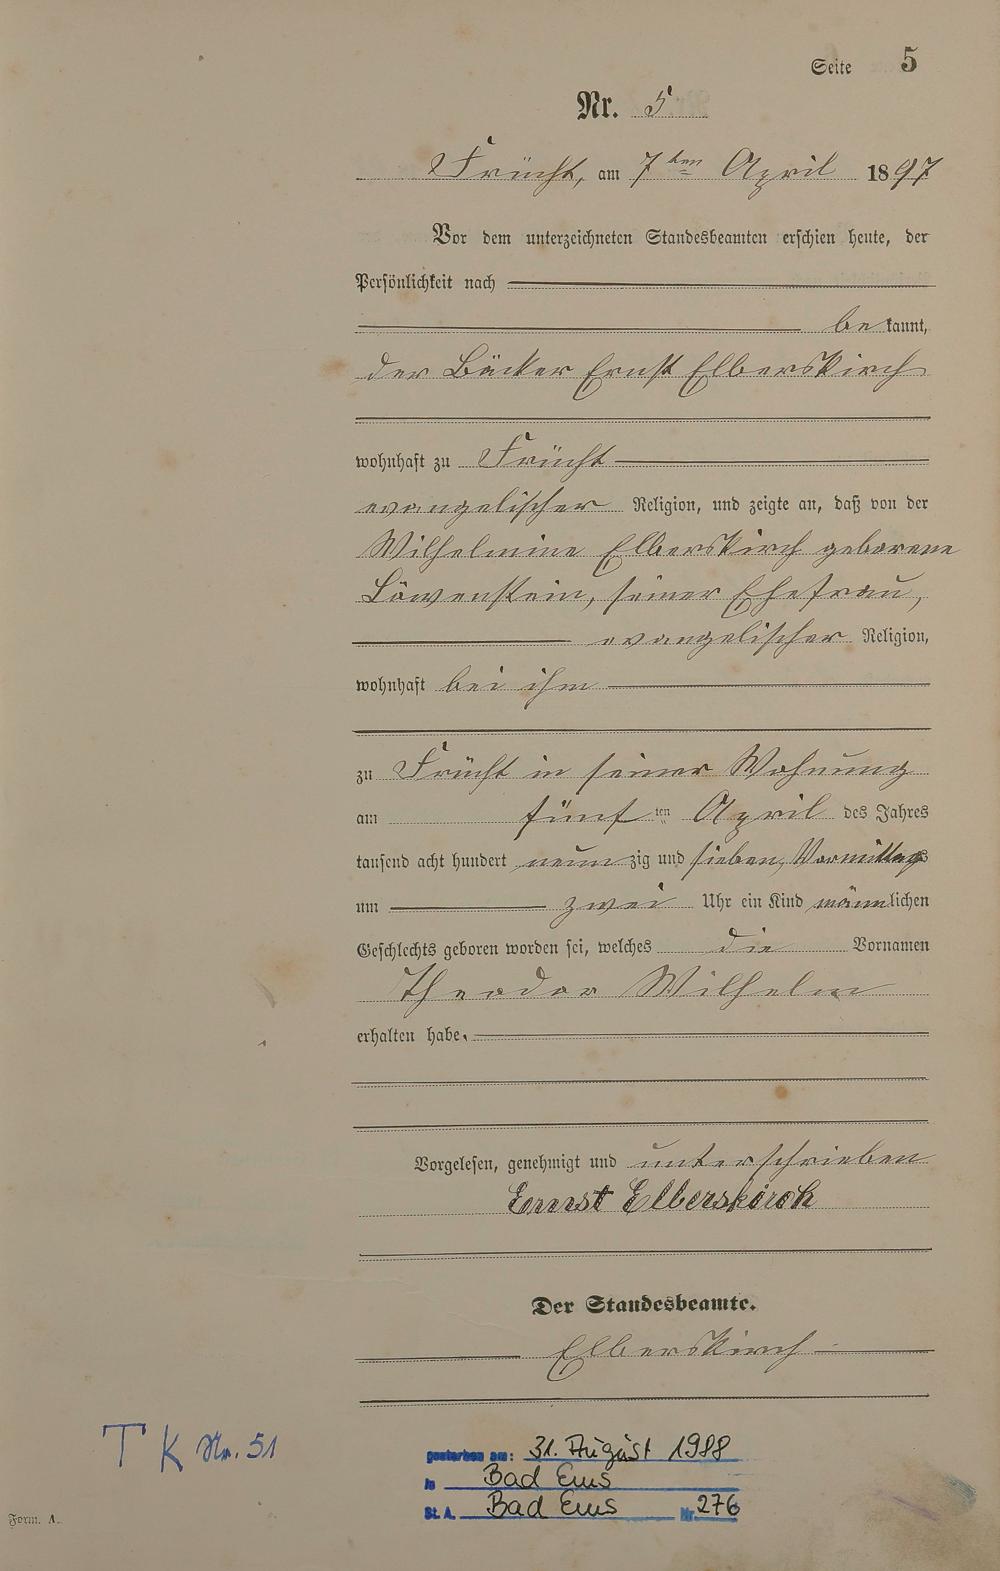 Seite 5
Nr. 5
Frücht, am 7ten April 1897
Vor dem unterzeichneten Standesbeamten erschien heute, der
Persönlichkeit nach
bekannt,
der Bäcker Ernst Elberskirch
wohnhaft zu Frücht
evangelischer Religion, und zeigte an, daß von der
Wilhelmine Elberskirch geborene
Löwenstein, seiner Ehefrau,
evangelischer Religion,
wohnhaft bei ihm
zu Frücht in seiner Wohnung
am fünften April des Jahres
tausend acht hundert neunzig und sieben, Vormittags
um zwei Uhr ein Kind männlichen
Geschlechts geboren worden sei, welches die Vornamen
Theodor Wilhelm
erhalten habe.
Vorgelesen, genehmigt und unterschrieben
Ernst Elberskirch
Der Standesbeamte.
Elberskirch
T K Nr. 51
gestorben am: 31. August 1988
in Bad Ems
St. A. Bad Ems Nr. 276
Form. A.